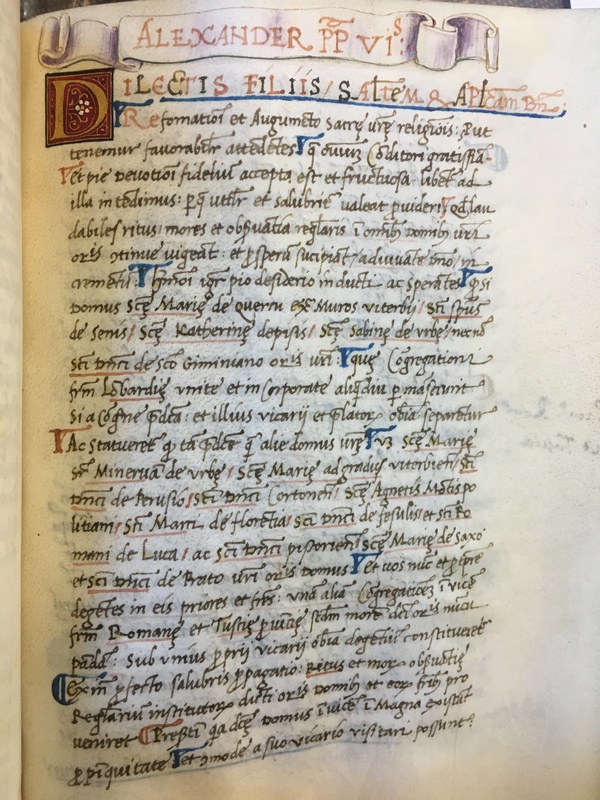 ALEXANDER PP VI S
DILECTIS FILIIS / SALTEM & APLCAM BN
Reformationi et Augumeto Sacre vre religiois: Put
tenemur favorabilr attedetes q ouium Coditori gratissia
et pie devotioi fidelium accepta est et fructuosa libet ad
illa intedimus: p q utilr et salubrie valeat provideri qd lau
dabiles ritus: mores et observatia reglaris i omib domib vri
oris otinue vigeat: et prosperu sucipiat / adiuvate dno / in
cremetu Hmoi igr pio desiderio inducti: ac sperates q si
domus Sce Marie de Quercu Ex Muros viterbij / Sti spus
de Senis / Sce Katherine de pisis / Sce Sabine de vrbe / necno
Sti Dnici de Sco Giminiano oris vri: que Cogregationi
frm Lobardie vnite et in Corporate aliqdiu p maserunt
Si a Cogne pdca: et illius vicarij et plator obia separetur
Ac statueret q ta pdce q alie domus vre vz Sce Marie
sr Minerva de vrbe / Sce Marie ad gradus viterbien / Sti
Dnici de Perusio / Sti Dnici Cortonen / Sce Agnetis Motis po
litiani / Sti Marci de floretia / Sci Dnici de fesulis / et Sti Ro
mani de Luca / ac Sci Dnici pistorien Sce Marie de Saxo
et Sci Dnici de Prato vri oris domus et vos nuc et p tpre
degetes in eis priores et frs: vna alia Cogregatioez i vice
frm Romane et Tuscie provicie sedm more dci oris nucu
padd: Sub vnius proprij vicarij obia degetiu constitueret
Ex m profecto salubris propagatio: Ritus et mor observatie
Reglariu institutor dicti oris Domib et eor frib pro
veniret Presti qa dce domus i vice i Magna existut
propiquitate et omode a suo vicario visitari possunt: